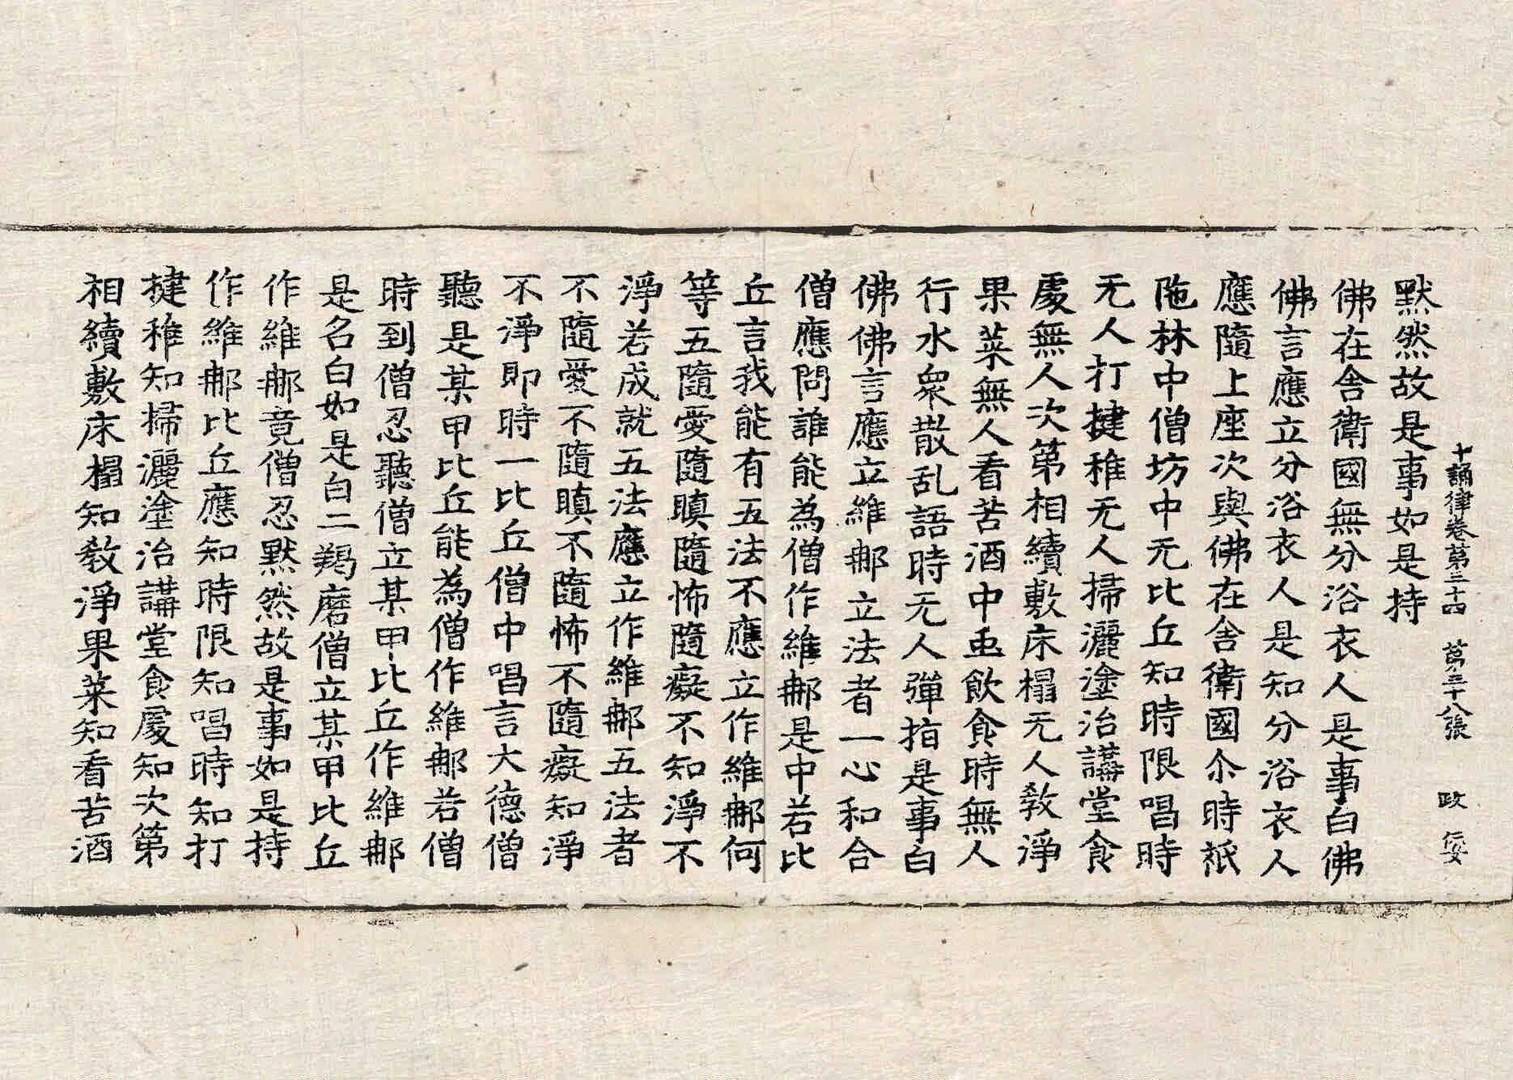 十誦律卷第三十四　第三十八張　政
默然故是事如是持
佛在舎衛國無分浴衣人是事白佛
佛言應立分浴衣人是知分浴衣人
應隨上座次與佛在舎衛國尒時祇
陁林中僧坊中无比丘知時限唱時
无人打揵稚无人掃灑塗治講堂食
處無人次第相續敷床榻无人教淨
果菜無人看苦酒中䖝飲食時無人
行水衆散乱語時无人彈指是事白
佛佛言應立維𨚗立法者一心和合
僧應問誰能為僧作維𨚗是中若比
丘言我能有五法不應立作維𨚗何
等五隨愛隨瞋隨怖隨癡不知淨不
淨若成就五法應立作維𨚗五法者
不隨愛不隨瞋不隨怖不隨癡知淨
不淨即時一比丘僧中唱言大德僧
聽是某甲比丘能為僧作維𨚗若僧
時到僧忍聽僧立某甲比丘作維𨚗
是名白如是白二羯磨僧立某甲比丘
作維𨚗竟僧忍默然故是事如是持
作維𨚗比丘應知時限知唱時知打
揵稚知掃灑塗治講堂食處知次第
相續敷床榻知教淨果菜知看苦酒